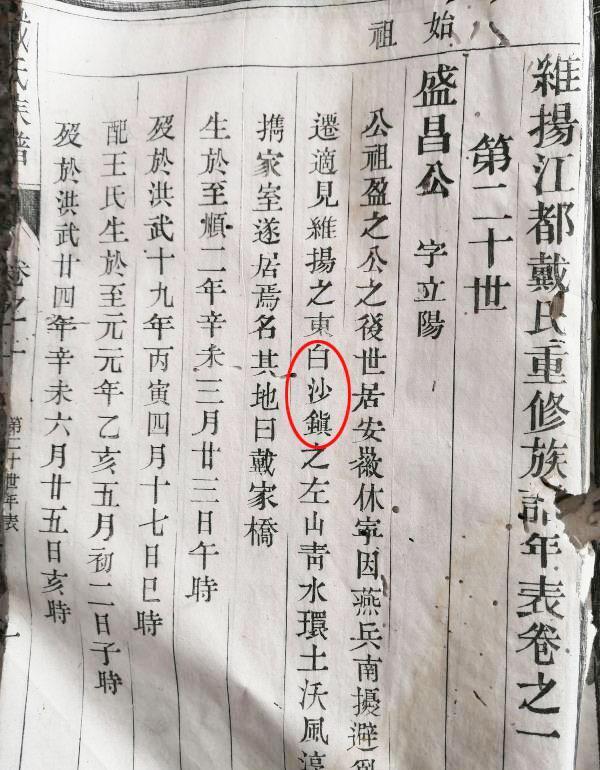 維揚江都戴氏重修族譜年表卷之一
第二十世
始祖
盛昌公 字立陽
公祖盈之公之後世居安徽休寧因燕兵南擾避
遷適見維揚之東白沙鎮之左山青水環土沃風淳
擕家室遂居焉名其地曰戴家橋
生於至順二年辛未三月廿三日午時
歿於洪武十九年丙寅四月十七日巳時
配王氏生於至元元年乙亥五月初二日子時
歿於洪武廿四年辛未六月廿五日亥時
戴氏族譜
卷之一
第二十世年表
一